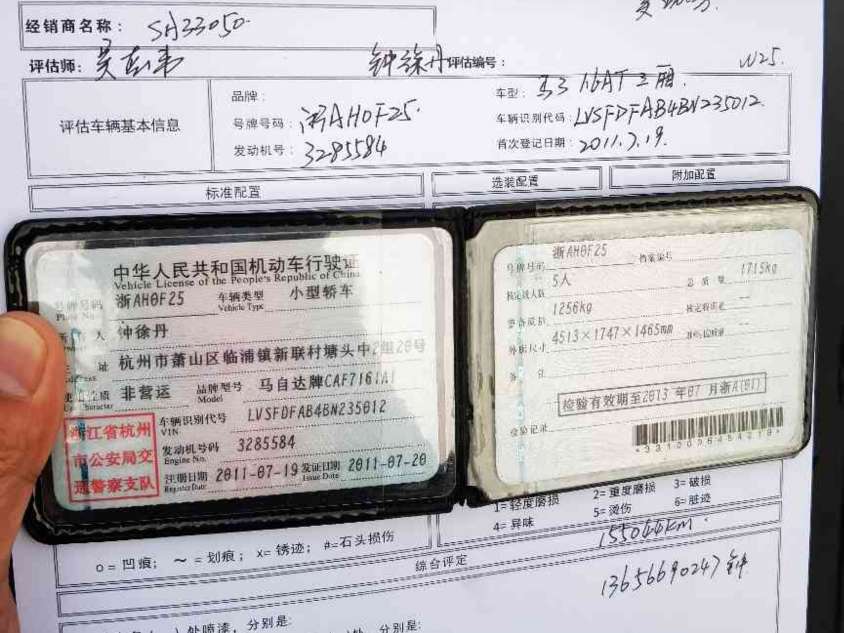 经销商名称： SH33050
评估师： 钟徐丹 评估编号： W25.
评估车辆基本信息
品牌：
车型： 马3 1.6AT 三厢
号牌号码： 浙AH0F25.
车辆识别代码： LVSFDFAB4BN235012.
发动机号： 3285584
首次登记日期： 2011.7.19.
标准配置
选装配置
附加配置
中华人民共和国机动车行驶证
Vehicle License of the People's Republic of China
号牌号码 浙AH0F25 车辆类型 小型轿车
Plate No. Vehicle Type
所有人 钟徐丹
住址 杭州市萧山区临浦镇新联村塘头中2组20号
使用性质 非营运 品牌型号 马自达牌CAF7161A1
Use Character Model
浙江省杭州
市公安局交
通警察支队
车辆识别代号 LVSFDFAB4BN235012
VIN
发动机号码 3285584
Engine No.
注册日期 2011-07-19 发证日期 2011-07-20
Register Date Issue Date
号牌号码 浙AH0F25 档案编号
核定载人数 5人 总质量 1715kg
整备质量 1256kg 核定载质量 --
外廓尺寸 4513×1747×1465mm 准牵引总质量 --
备注
检验有效期至2013年07月浙A(01)
检验记录
1=轻度磨损 2=重度磨损 3=破损
4=异味 5=烫伤 6=脏迹
o=凹痕； ～=划痕； x=锈迹； #=石头损伤
155044km.
综合评定
13656690247 钟
处喷漆，分别是:
处，分别是: